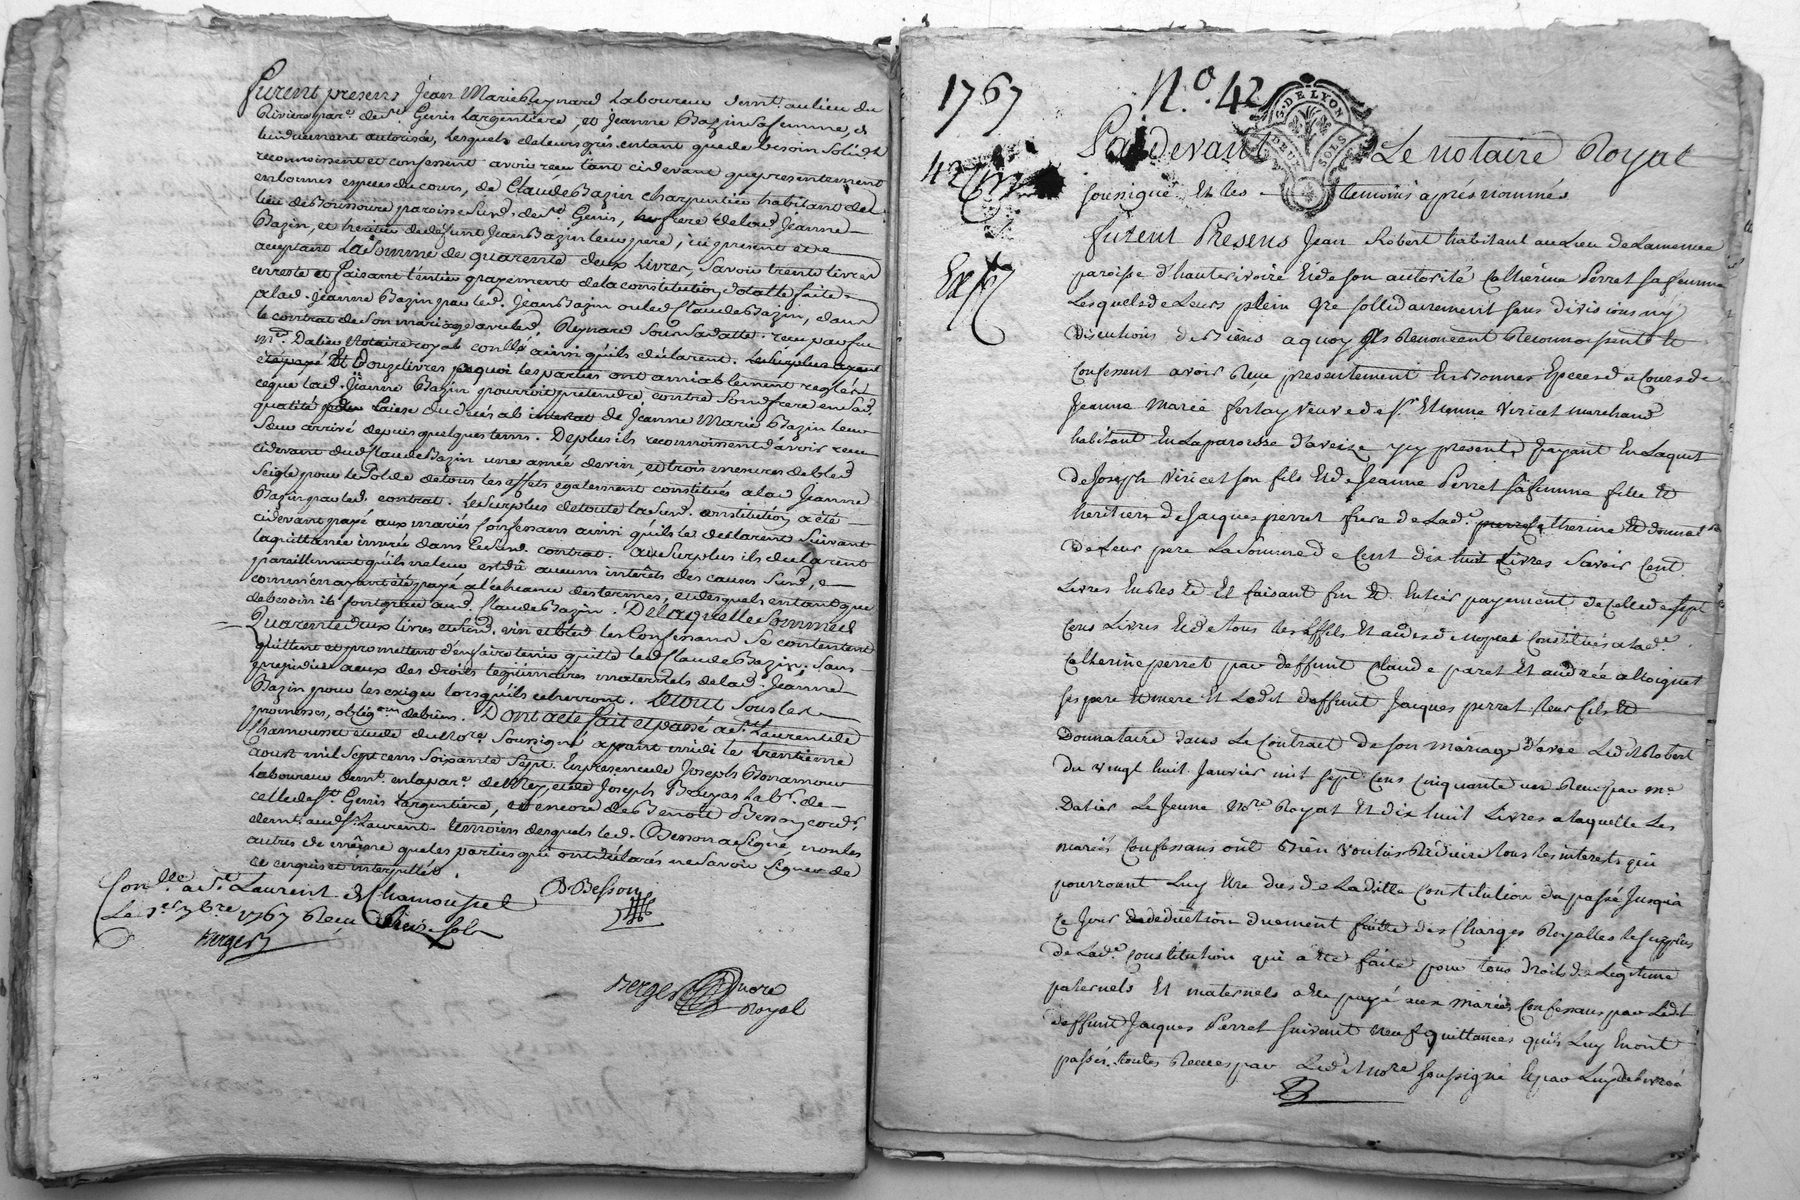 furent presens Jean Marie Reynard Laboureur demt. au lieu du
Riviere parr. de St. Genis Largentiere, et Jeanne Bazin sa femme, de
lui duement autorisée, lesquels de leurs grés entant que de besoin solidt.
reconnoissent et confessent avoir reçu tant cidevant que presentement
en bonnes especes du cours, de Claude Bazin charpentier habitant du
lieu de Boussoure paroisse susd. de St. Genis, frere de lad. Jeanne
Bazin, et heritier du defunt Jean Bazin leur pere, ici present et
acceptant La somme de quarente deux Livres, Savoir trente livres
en reste et faisant l'entier payement de la constitution dotalle faite
a lad. Jeanne Bazin par led. Jean Bazin ou led. Claude Bazin, dans
le contrat de son mariage avec led. Reynard sous sa datte. reçu par feu
me. Dalier Notaire royal conllé ainsi qu'ils declarent. Le surplus ayant
eté payé Et Douze livres à quoi les parties ont amiablement reglés
ce que lad. Jeanne Bazin pourroit pretendre contre son frere en sad.
qualité du deces ab intestat de Jeanne Marie Bazin leur
Seur arrivé depuis quelques tems. De plus ils reconnoissent d'avoir reçu
cidevant dud. Claude Bazin une année de vin, et trois mesures de bled
seigle pour le solde de tous les effets egalement constitués a lad. Jeanne
Bazin par led. contrat. Le surplus de toute la susd. constitution a été
cidevant payé aux mariés confessans ainsi qu'ils le declarent suivant
la quittance inserée dans le susd. contrat. Au surplus ils declarent
pareillement qu'il ne leur est dû aucuns interêts des causes susd.
comme n'ayant été payé a l'echeance des termes, et desquels entant que
de besoin ils font grace aud. Claude Bazin. De laquelle somme de
Quarente deux livres et susd. vin et bled les Confessans se contentent
quittent et promettent d'en faire tenir quitte led. Claude Bazin. Sans
prejudice a eux des droits legitimaires maternels de lad. Jeanne
Bazin pour les exiger lorsqu'ils echerront. Le tout sous les
promesses, obligons. de biens. Dont acte fait et passé a St. Laurent de
Chamousset etude du Nore. soussigné apprès midi le trentieme
aoust mil sept cens soixante sept. En presence de Joseph Bonamour
laboureur demt. en la parr. de Mey, et de Joseph Bruyas labr. de
celle de St. Genis Largentiere, et encore de Benoit Besson cordr.
demt. aud. St. Laurent. temoins desquels led. Besson a signé non les
autres de même que les parties qui ont déclarés ne savoir signer de
ce enquis et interpellés.
Conllé a St. Laurent de Chamousset
Le 1er 7bre 1767 Reçu Sols
Berger
B Besson
Berger nore
Royal
1767
No. 42
G. DE LYON
DEUX SOLS
Pardevant Le notaire Royal
soussigné Et les temoins après nommés
furent Presens Jean Robert habitant au Lieu de Lamence
paroisse d'hauterivoire Et de son autorité Catherine Perret sa femme
Lesquels de Leurs plein gré sollidairement sans divisions ny
discutions de Biens a quoy ils Renoncent Reconnoissent Et
Confessent avoir Reçu presentement En Bonnes Especes du Cours de
Jeanne Marie ferlay veuve de sr. Etienne Viricel marchand
habitant En la paroisse d'aveize y present, payant En Laquit
de Joseph Viricel son fils Et de Jeanne Perret sa femme fille Et
heritiere de Jacques pierret frere de Lade. Catherine Et donnatre
de Leur pere La Somme de Cent dix huit Livres Savoir Cent
Livres En Reste Et faisant fin Et Entier payement de Celle de sept
Cens Livres Et de tous les Effets Constitués a Lade.
Catherine perret par deffunt Claude paret Et andrée alloignet
ses pere Et mere Et Ledit deffunt Jacques perret leur fils Et
Donnataire dans Le Contrat de son mariage d'avec Ledit Robert
du vingt huit Janvier mil sept Cens Cinquante un Reçu par me
Dalier Le Jeune Nore Royal Et dix huit Livres a laquelle Les
mariés Confessans ont Bien voulus Réduire tous les interests qui
pourroient Luy Etre dus de Laditte Constitution du passé Jusqu'a
ce Jour deduction duement faitte des Charges Royalles le surplus
de Lade. Constitution qui a été faite pour tous droits de Legitime
paternels Et maternels a Eté payé aux mariés Confessans par Ledit
deffunt Jacques Perret suivant neuf quittances qu'ils Luy En ont
passés toutes Recues par Ledit Nore soussigné Et par Luy delivrée